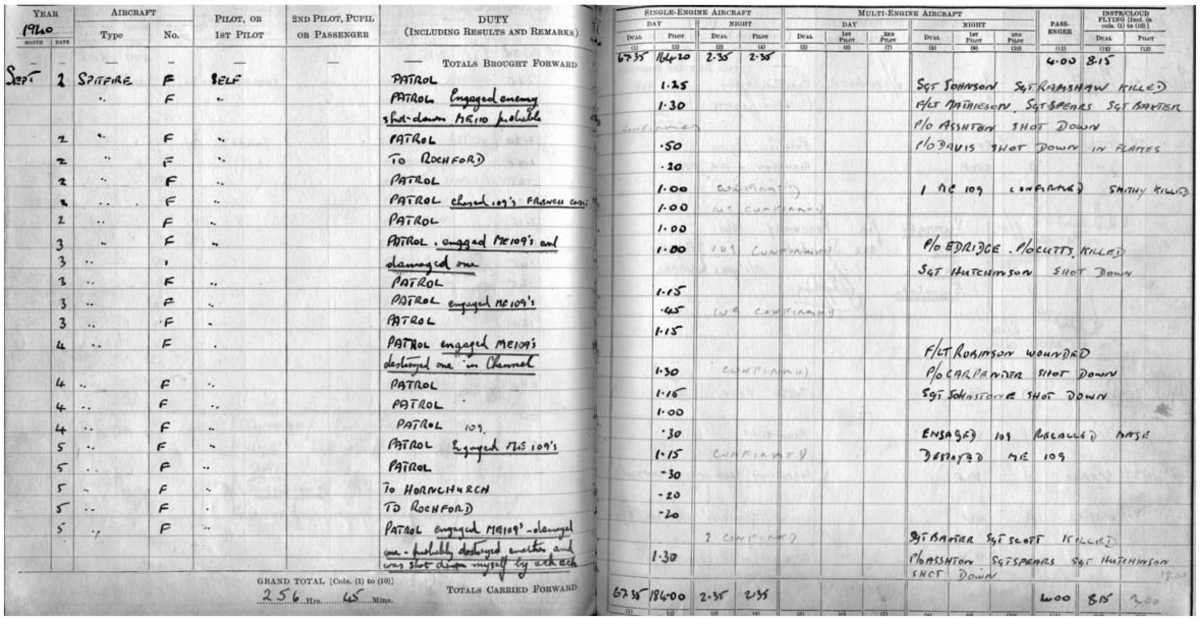 YEAR AIRCRAFT PILOT, OR 2ND PILOT, PUPIL DUTY SINGLE-ENGINE AIRCRAFT MULTI-ENGINE AIRCRAFT PASS- INSTR/CLOUD
1940 1ST PILOT OR PASSENGER (INCLUDING RESULTS AND REMARKS) DAY NIGHT DAY NIGHT ENGER FLYING [Incl. in cols. (1) to (10)]
MONTH DATE Type No. DUAL PILOT DUAL PILOT DUAL 1ST PILOT 2ND PILOT DUAL 1ST PILOT 2ND PILOT DUAL PILOT
(1) (2) (3) (4) (5) (6) (7) (8) (9) (10) (11) (12) (13)
TOTALS BROUGHT FORWARD 67.35 164.20 2.35 2.35 4.00 8.15
SEPT 2 SPITFIRE F SELF PATROL 1.25 SGT JOHNSON SGT RAMSHAW KILLED
" F " PATROL Engaged enemy 1.30 F/LT MATHIESON. SGT SPEARS SGT BAXTER
shot down ME110 probable P/O ASSHTON SHOT DOWN
2 " F " PATROL .50 P/O DAVIS SHOT DOWN IN FLAMES
2 " F " TO ROCHFORD .20
2 " F " PATROL 1.00 CONFIRMED 1 ME 109 CONFIRMED SMITHY KILLED
2 " F " PATROL chased 109's FRENCH COAST 1.00 109 CONFIRMED
2 " F " PATROL 1.00
3 " F " PATROL. engaged ME109's and 1.00 109 CONFIRMED P/O EDRIDGE. P/O CUTTS KILLED
3 " damaged one SGT HUTCHINSON SHOT DOWN
3 " F " PATROL 1.15
3 " F " PATROL engaged ME109's .45 109 CONFIRMED
3 " F " PATROL 1.15
4 " F " PATROL engaged ME109's F/LT ROBINSON WOUNDED
destroyed one in Channel 1.30 CONFIRMED P/O CARPANTER SHOT DOWN
4 " F " PATROL 1.15 SGT JOHNSTONE SHOT DOWN
4 " F " PATROL 1.00
4 " F " PATROL 109. .30 ENGAGED 109 RECALLED BASE
5 " F " PATROL Engaged ME 109's 1.15 CONFIRMED DESTOYED ME 109
5 " F " PATROL .30
5 " F " TO HORNCHURCH .20
5 " F " TO ROCHFORD .20
5 " F " PATROL engaged ME109's - damaged 2 CONFIRMED SGT BAXTER SGT SCOTT KILLED
one - probably destroyed another and 1.30 P/O ASSHTON SGT SPEARS SGT HUTCHINSON
was shot down myself by ack ack SHOT DOWN
GRAND TOTAL [Cols. (1) to (10)]
256 Hrs. 45 Mins. TOTALS CARRIED FORWARD 67.35 184.00 2.35 2.35 4.00 8.15 3.00
(1) (2) (3) (4) (5) (6) (7) (8) (9) (10) (11) (12) (13)